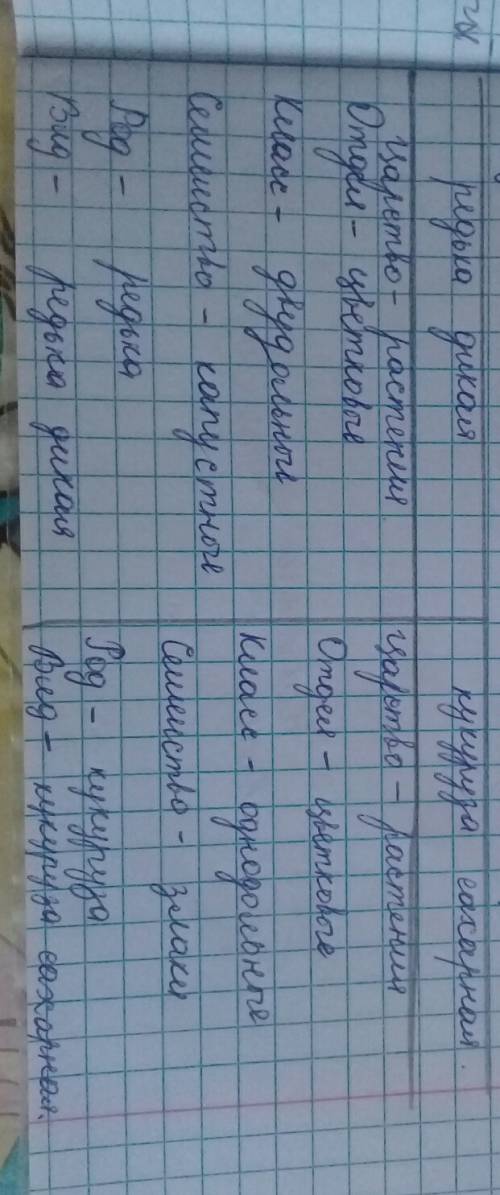 редька дикая
Царство - растения
Отдел - цветковые
Класс - двудольные
Семейство - капустные
Род - редька
Вид - редька дикая
кукуруза сахарная.
Царство - растения
Отдел - цветковые
Класс - однодольные
Семейство - злаки
Род - кукуруза
Вид - кукуруза сахарная.